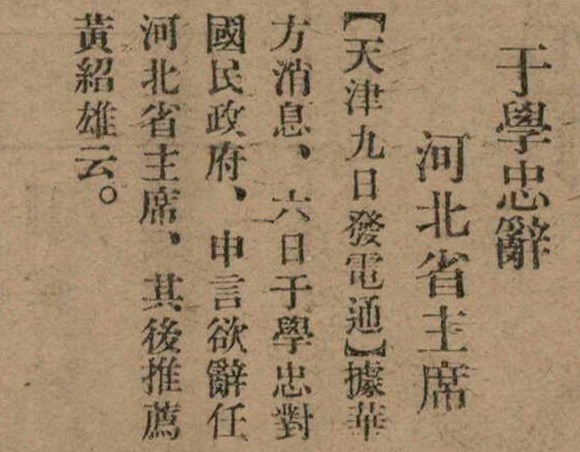 于學忠辭
河北省主席
【天津九日發電通】據華
方消息、六日于學忠對
國民政府、申言欲辭任
河北省主席、其後推薦
黃紹雄云。